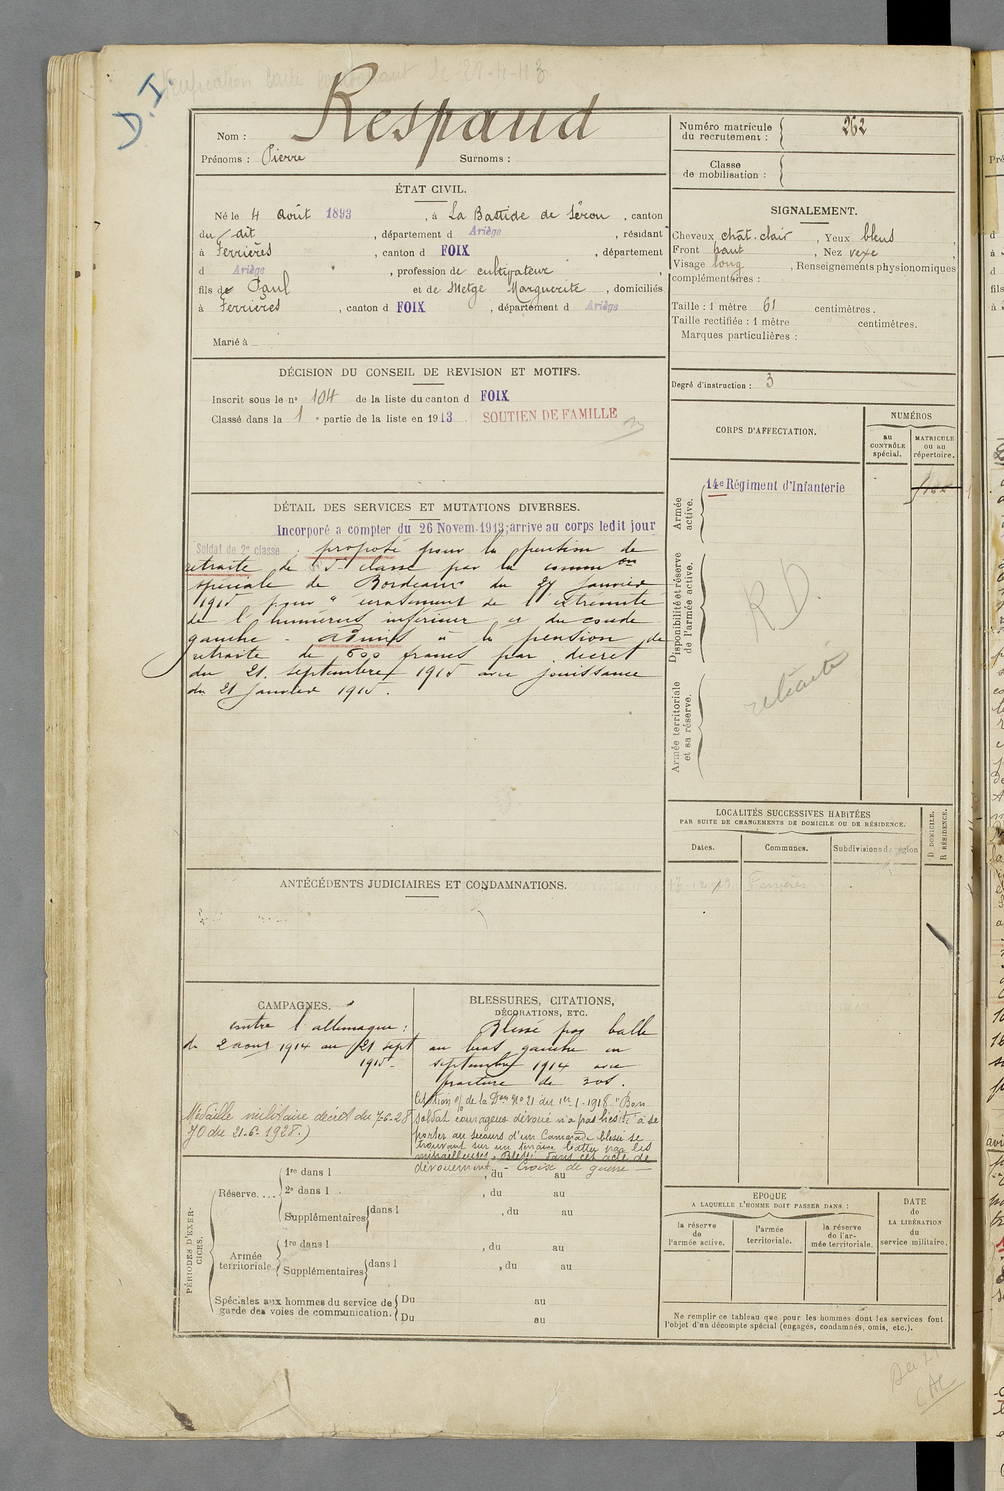 Vérification carte combattant le 28-4-43
D.I.
Nom : Respaud
Prénoms : Pierre Surnoms :
Numéro matricule du recrutement : 262
Classe de mobilisation :
ÉTAT CIVIL.
Né le 4 Août 1893, à La Bastide de Sérou, canton
du dit, département d Ariège, résidant
à Ferrières, canton d FOIX, département
d Ariège, profession de cultivateur,
fils de Paul et de Metge Marguerite, domiciliés
à Ferrières, canton d FOIX, département d Ariège
Marié à
SIGNALEMENT.
Cheveux chât. clair, Yeux bleus
Front haut, Nez vexe
Visage long, Renseignements physionomiques
complémentaires :
Taille : 1 mètre 61 centimètres.
Taille rectifiée : 1 mètre centimètres.
Marques particulières :
Degré d'instruction : 3
DÉCISION DU CONSEIL DE REVISION ET MOTIFS.
Inscrit sous le n° 104 de la liste du canton d FOIX
Classé dans la 1e partie de la liste en 1913 SOUTIEN DE FAMILLE
DÉTAIL DES SERVICES ET MUTATIONS DIVERSES.
Incorporé a compter du 26 Novem. 1913; arrive au corps ledit jour
Soldat de 2e classe. proposé pour la pension de
retraite de 5e classe par la common
spéciale de Bordeaux du 27 janvier
1915 pour " écrasement de l'extrémité
de l'humérus inférieur et du coude
gauche - admis à la pension de
retraite de 600 francs par décret
du 21 septembre 1915 avec jouissance
du 21 janvier 1915.
CORPS D'AFFECTATION.
NUMÉROS
au CONTRÔLE spécial.
MATRICULE ou au répertoire.
Armée active.
14e Régiment d'Infanterie
Disponibilité et réserve de l'armée active.
RD.
Armée territoriale et sa réserve.
retraité
LOCALITÉS SUCCESSIVES HABITÉES
PAR SUITE DE CHANGEMENTS DE DOMICILE OU DE RÉSIDENCE.
Dates.
Communes.
Subdivisions de région
D DOMICILE.
R RÉSIDENCE.
Ferrières
ANTÉCÉDENTS JUDICIAIRES ET CONDAMNATIONS.
CAMPAGNES.
contre l'allemagne :
du 2 aout 1914 au 21 sept
1915.
Médaille militaire décret du 7-6-28
JO du 21-6-1928.)
BLESSURES, CITATIONS,
DÉCORATIONS, ETC.
Blessé par balle
au bras gauche en
septembre 1914 avec
fracture de 2 os.
Citation o/ de la Don No 21 du 1er-1-1918 "Bon
soldat courageux dévoué n'a pas hésité à se
porter au secours d'un Camarade blessé se
trouvant sur un terrain battu par les
mitrailleuses. Blessé dans cet acte de
dévouement. - Croix de guerre -
PÉRIODES D'EXERCICES.
Réserve....
1re dans l , du au
2e dans l , du au
Supplémentaires dans l , du au
Armée territoriale.
1re dans l , du au
Supplémentaires dans l , du au
Spéciales aux hommes du service de
garde des voies de communication.
Du au
Du au
EPOQUE
A LAQUELLE L'HOMME DOIT PASSER DANS :
la réserve de l'armée active.
l'armée territoriale.
la réserve de l'armée territoriale.
DATE
de
LA LIBÉRATION
du
service militaire.
Ne remplir ce tableau que pour les hommes dont les services font
l'objet d'un décompte spécial (engagés, condamnés, omis, etc.).